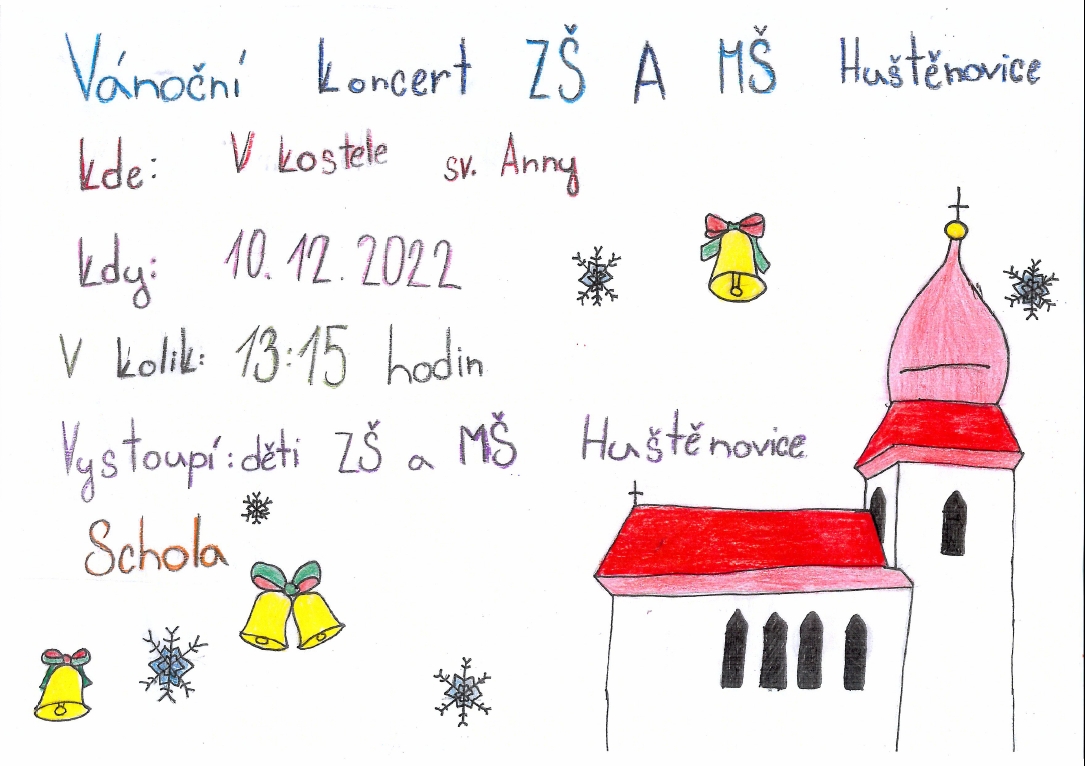 Vánoční koncert ZŠ A MŠ Huštěnovice
kde: V kostele sv. Anny
kdy: 10.12.2022
V kolik: 13:15 hodin
Vystoupí: děti ZŠ a MŠ Huštěnovice
Schola